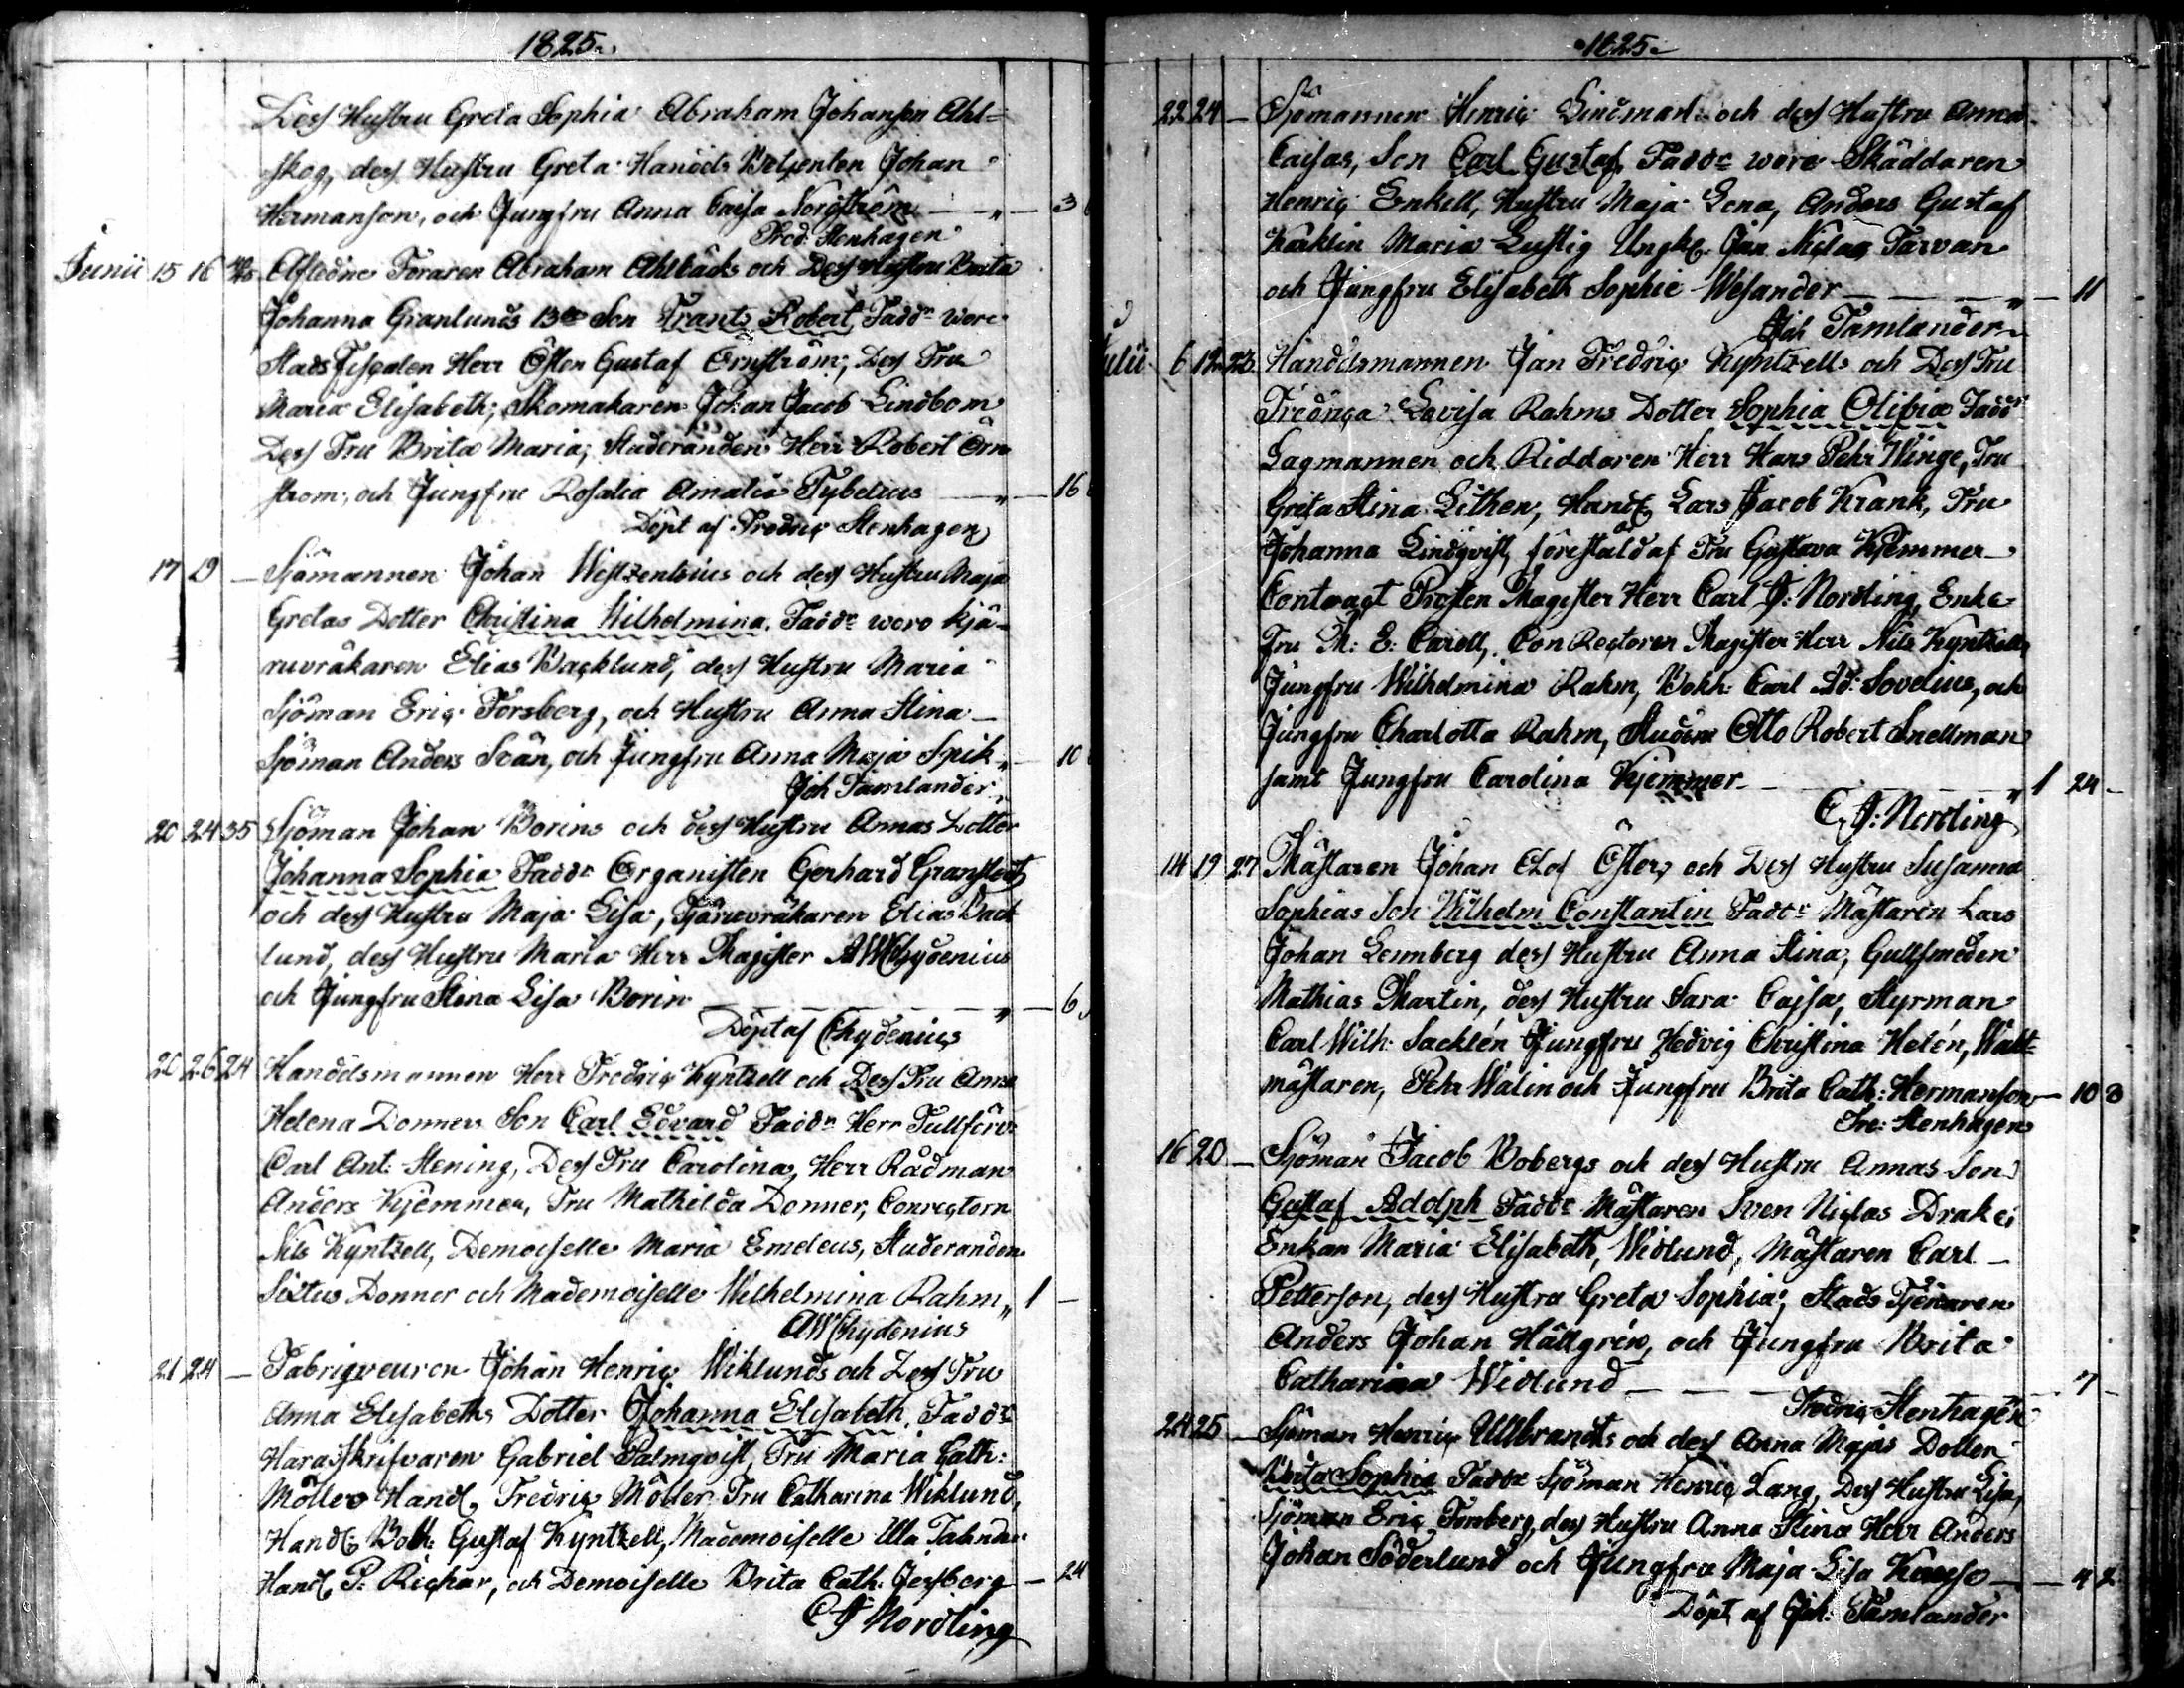 1825.
Dess Hustru Greta Sophia Abraham Johanson Ahl=
skog, dess Hustru Greta Handels Betjenten Johan
Hermanson, och Jungfru Anna Caisa Norström — „ — 3
Fred: Stenhagen
Junii 15 16 Afledne Foraren Abraham Ahlbäcks och Dess Hustru Brita
Johanna Granlunds Son Frantz Robert, Faddr wore
Stads Fiscalen Herr Östen Gustaf Örnström, Dess Fru
Maria Elisabeth; Skomakaren Johan Jacob Lindbom
Dess Fru Brita Maria; Studeranden Herr Robert Örn
strom; och Jungfru Rosalia Amalia Sybelius — „ — 16
Döpt af Fredric Stenhagen
17 19 — Sjömannen Johan Westzentzius och dess Hustru Maja
Gretas Dotter Christina Wilhelmina. Faddr woro kjä-
ruvräkaren Elias Backlund, dess Hustru Maria
Sjöman Eric Forsberg, och Hustru Anna Stina —
Sjöman Anders Svän, och Jungfru Anna Maja Spik „ — 10
Joh Tamlander
20 24 35 Sjöman Johan Borins och dess Hustru Annas Dotter
Johanna Sophia Faddr Organisten Gerhard Granstedt
och dess Hustru Maja Lisa, Tjäruvräkaren Elias Back
lund, dess Hustru Maria Herr Magister AWChydenius
och Jungfru Stina Lisa Borin — — — „ — 6
Döpt af Chydenius
20 26 24 Handelsmannen Herr Fredric Kyntzell och Dess Fru Anna
Helena Donners Son Carl Edvard Faddr Herr Tullförv:
Carl Ant: Stening, Dess Fru Carolina, Herr Rådman
Anders Kjemmer, Fru Mathilda Donner, Conrectorn
Nils Kyntzell, Demoiselle Maria Emeleus, Studeranden
Sixtus Donner och Mademoiselle Wilhelmina Rahm „ 1 —
AWChydenius
21 24 — Fabriqveuren Johan Henric Wiklunds och Dess Fru
Anna Elisabeths Dotter Johanna Elisabeth, Faddr
Haradsskrifvaren Gabriel Palmqvist, Fru Maria Cath:
Möller Handl. Fredric Möller Fru Catharina Wiklund,
Handl. Bokh: Gustaf Kyntzell, Mademoiselle Ulla
Handl. P: Richar, och Demoiselle Brita Cath: Jesberg — 24
C J Nordling
1825.
22 24 — Sjömannen Henric Lindman och dess Hustru Anna
Caisas, Son Carl Gustaf. Faddr wore Skäddaren
Henric Enkell, Hustru Maja Lena, Anders Gustaf
Maria Lustig Ungk. Jan Niclas Tarvan
och Jungfru Elisabeth Sophie Wesander — — — „ — 11 -
Joh Tamlander
Julii 6 12 23 Handelsmannen Jan Fredric Kyntzells och Dess Fru
Fredrica Lovisa Rahms Dotter Sophia Olivia Faddr
Lagmannen och Riddaren Herr Hans Pehr Winge, Fru
Greta Stina Lithen, Handl. Lars Jacob Krank, Fru
Johanna Lindqvist, förestäld af Fru Gustava Kjemmer
Contract Prosten Magister Herr Carl J: Nordling, Enke
Fru M: E: Carell, Con Rectoren Magister Herr Nils Kyntzell
Jungfru Wilhelmina Rahm, Bokh: Carl Ad: Sovelius, och
Jungfru Charlotta Rahm, Studer: Otto Robert Snellman
samt Jungfru Carolina Kjemmer — „ 1 24 -
C J: Nordling
14 19 27 Mästaren Johan Olof Öster, och Dess Hustru Susanna
Sophias Son Wilhelm Constantin Faddr Mästaren Lars
Johan Lennberg dess Hustru Anna Stina, Gullsmeden
Mathias Martin, dess Hustru Sara Cajsa, Styrman
Carl Wilh: Sacklén Jungfru Hedvig Christina Helén, Wakt
mästaren, Pehr Walin och Jungfru Brita Cath: Hermanson — 10 8
Fre: Stenhagen
16 20 — Sjöman Jacob Bobergs och dess Hustru Annas Son
Gustaf Adolph Faddr Mästaren Sven Niclas Drake;
Enkan Maria Elisabeth, Widlund, Mästaren Carl —
Petterson, dess Hustru Greta Sophia; Stads Tjenaren
Anders Johan Hällgrén, och Jungfru Brita
Catharina Widlund — — — 7 -
Fredric Stenhagen
24 25 — Sjöman Henric Ullbrandts och dess Anna Majas Dotter
Brita Sophia Faddr Sjöman Henric Lang, Dess Hustru Lisa,
Sjöman Eric Forsberg, dess Hustru Anna Stina Herr Anders
Johan Söderlund och Jungfru Maja Lisa — — 4 2
Döpt af Joh: Tamlander